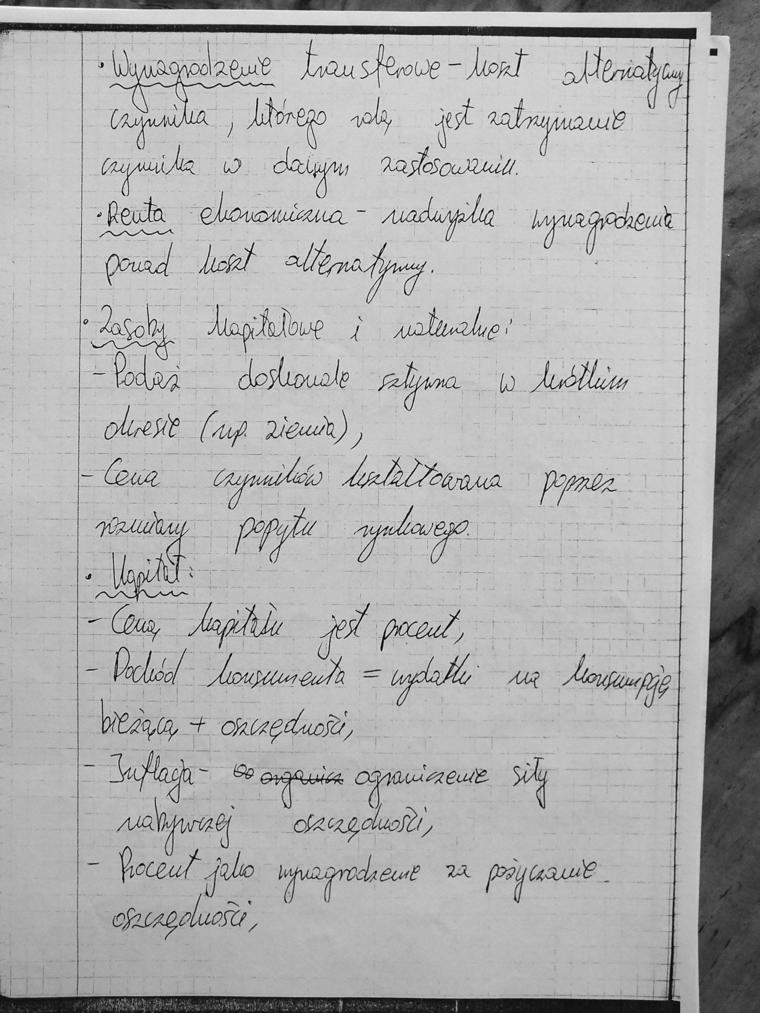 • Wynagrodzenie transferowe - koszt alternatywny
czynnika, którego rolą jest zatrzymanie
czynnika w danym zastosowaniu.
• Renta ekonomiczna - nadwyżka wynagrodzenia
ponad koszt alternatywny.
• Zasoby kapitałowe i naturalne:
- Podaż doskonale sztywna w krótkim
okresie (np. ziemia),
- Cena czynników kształtowana poprzez
rozmiary popytu rynkowego.
• Kapitał:
- Ceną kapitału jest procent,
- Dochód konsumenta = wydatki na konsumpcję
bieżącą + oszczędności,
- Inflacja - ograniczenie siły
nabywczej oszczędności,
- Procent jako wynagrodzenie za pożyczanie
oszczędności,